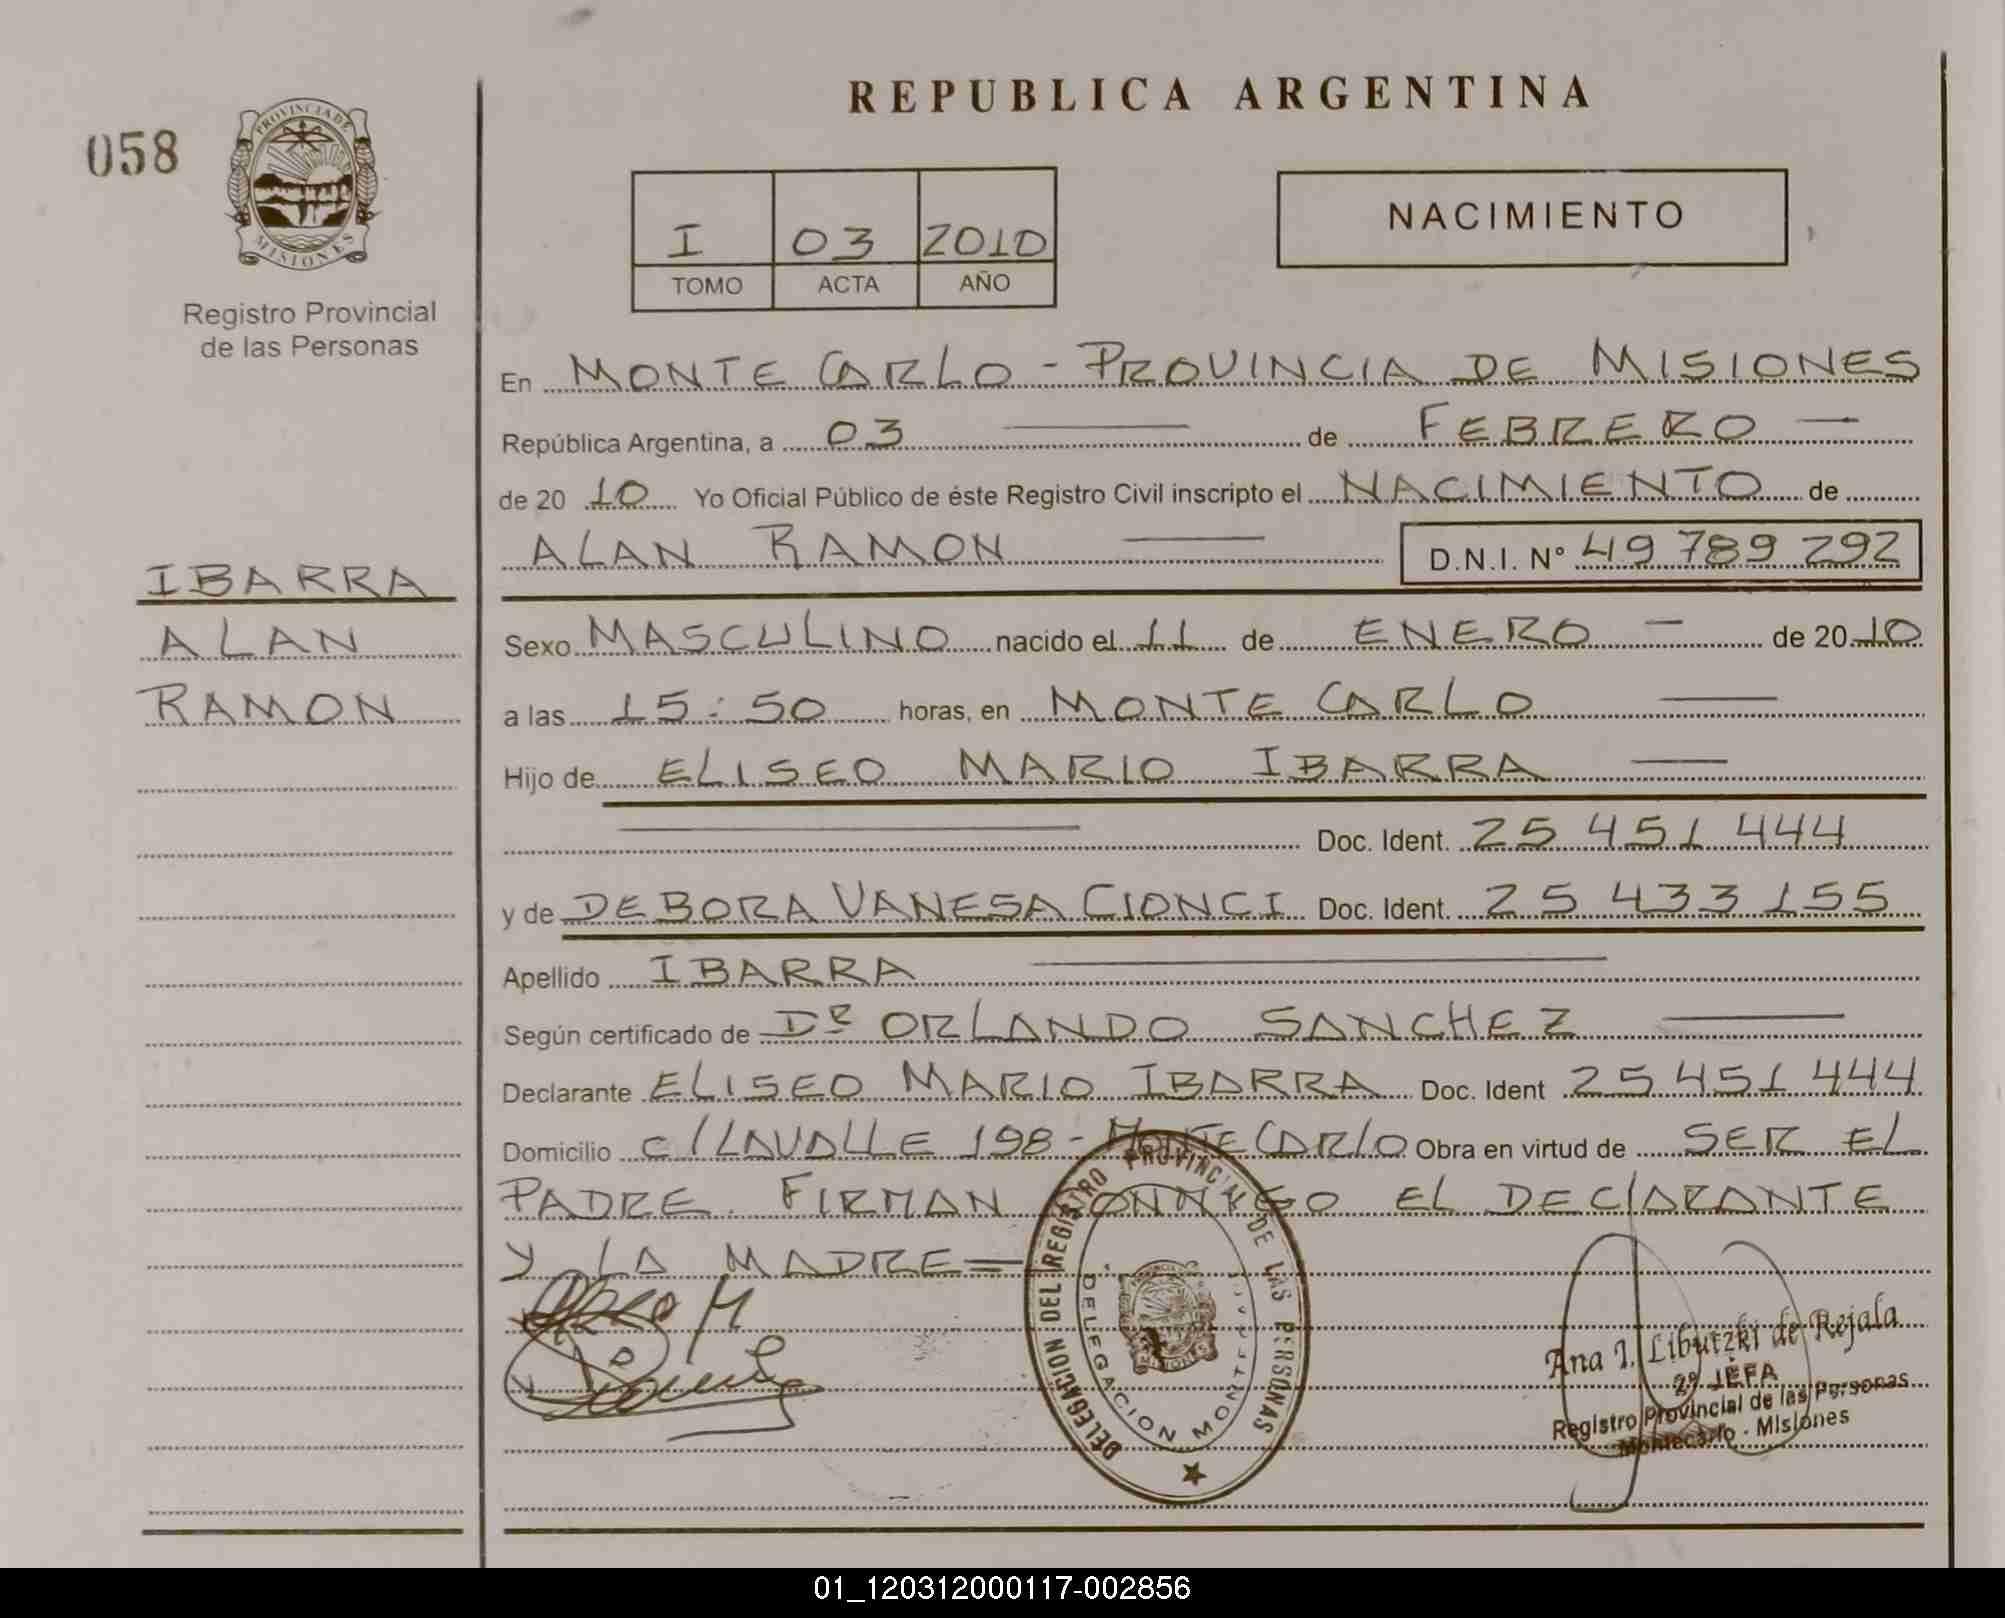 REPUBLICA ARGENTINA
058
PROVINCIA DE
MISIONES
Registro Provincial
de las Personas
I 03 2010
TOMO ACTA AÑO
NACIMIENTO
En MONTE CARLO - PROVINCIA DE MISIONES
República Argentina, a 03 de FEBRERO
de 20 10 Yo Oficial Público de éste Registro Civil inscripto el NACIMIENTO de
ALAN RAMON D.N.I. Nº 49 789 292
IBARRA
ALAN
RAMON
Sexo MASCULINO nacido el 11 de ENERO - de 20 10
a las 15:50 horas, en MONTE CARLO
Hijo de ELISEO MARIO IBARRA
Doc. Ident. 25 451 444
y de DEBORA VANESA CIONCI Doc. Ident. 25 433 155
Apellido IBARRA
Según certificado de Dr ORLANDO SANCHEZ
Declarante ELISEO MARIO IBARRA Doc. Ident 25 451 444
Domicilio C/LAVALLE 198 - MONTE CARLO Obra en virtud de SER EL
PADRE. FIRMAN CONMIGO EL DECLARANTE
Y LA MADRE=
DELEGACION DEL REGISTRO PROVINCIAL DE LAS PERSONAS
DELEGACION
Ana I. Libutzki de Rejala
2º JEFA
Registro Provincial de las Personas
Montecarlo - Misiones
01_120312000117-002856